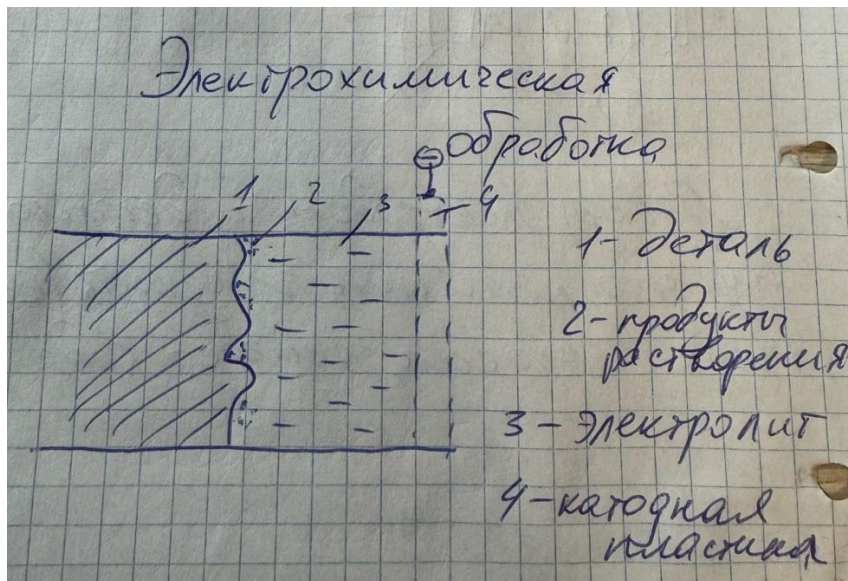 Электрохимическая
обработка
⊖
1 2 3 4
1 - деталь
2 - продукты
растворения
3 - электролит
4 - катодная
пластина